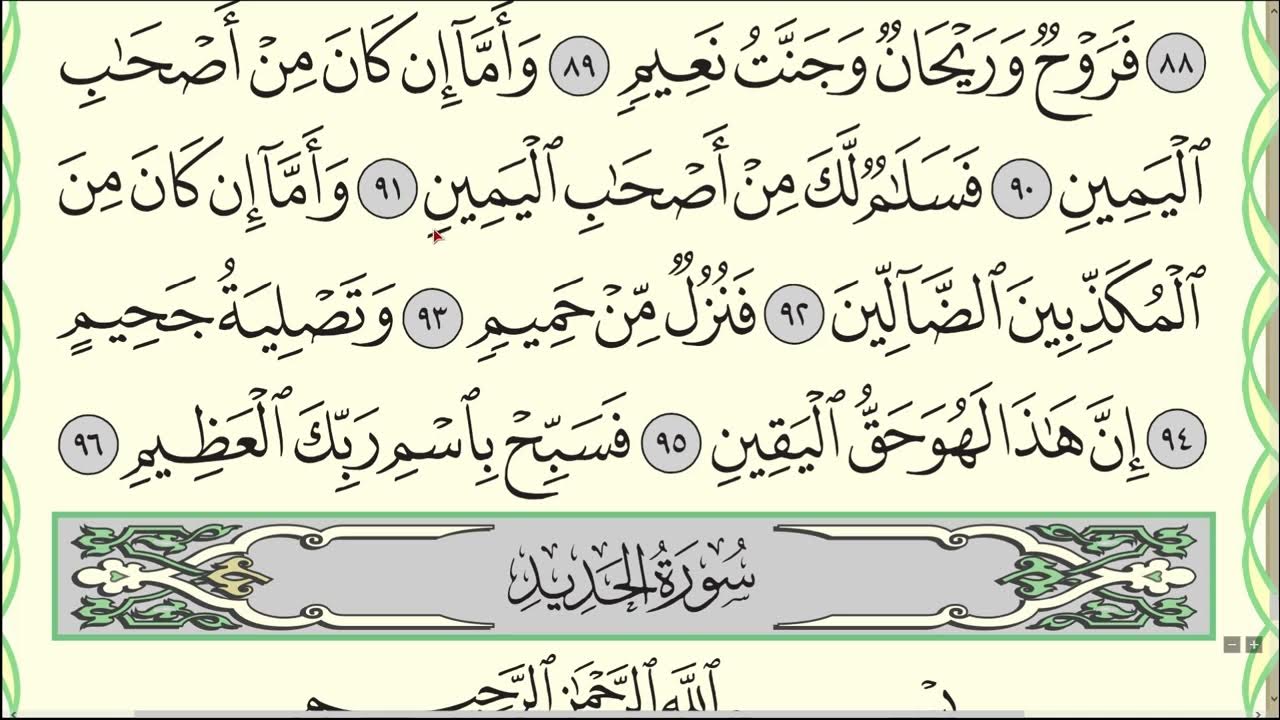 ٨٨ فَرَوۡحٞ وَرَيۡحَانٞ وَجَنَّتُ نَعِيمٖ ٨٩ وَأَمَّآ إِن كَانَ مِنۡ أَصۡحَٰبِ
ٱلۡيَمِينِ ٩٠ فَسَلَٰمٞ لَّكَ مِنۡ أَصۡحَٰبِ ٱلۡيَمِينِ ٩١ وَأَمَّآ إِن كَانَ مِنَ
ٱلۡمُكَذِّبِينَ ٱلضَّآلِّينَ ٩٢ فَنُزُلٞ مِّنۡ حَمِيمٖ ٩٣ وَتَصۡلِيَةُ جَحِيمٍ
٩٤ إِنَّ هَٰذَا لَهُوَ حَقُّ ٱلۡيَقِينِ ٩٥ فَسَبِّحۡ بِٱسۡمِ رَبِّكَ ٱلۡعَظِيمِ ٩٦
سُورَةُ الحَدِيدِ
بِسۡمِ ٱللَّهِ ٱلرَّحۡمَٰنِ ٱلرَّحِيمِ